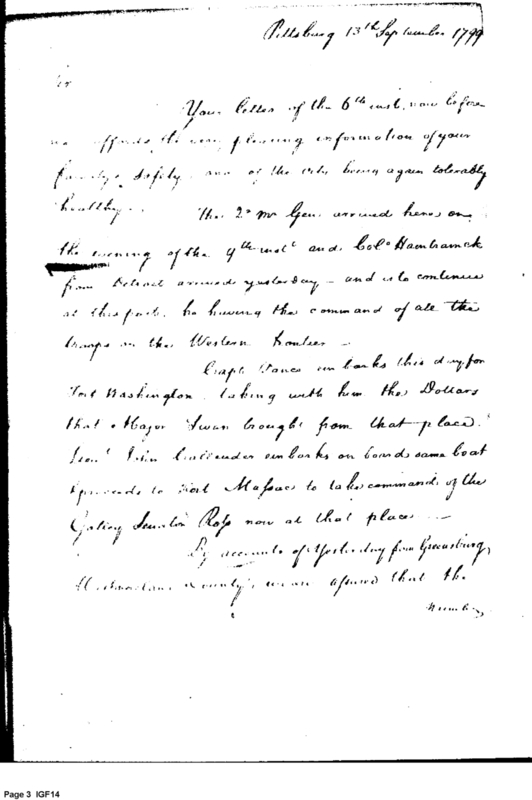 Pittsburg 13th September 1799
Sir
Your letter of the 6th inst. now before
me affords the very pleasing information of your
family's safety and of the City being again tolerably
healthy.
The 2d Mr Gen. arrived here on
the evening of the 9th instt and Colo Hamtramck
from Detroit arrived yesterday – and is to continue
at this post. he having the command of all the
troops on the Western frontier –
Capt. Vance embarks this day for
Fort Washington, taking with him the Dollars
that Major Swan brought from that place.
Lieut John Callender embarks on board same boat
& proceeds to Fort Massac to take command of the
Galley Senator Ross now at that place –
By accounts of Yesterday from Greensburg,
County, we are assured that the
number
Page 3 IGF14